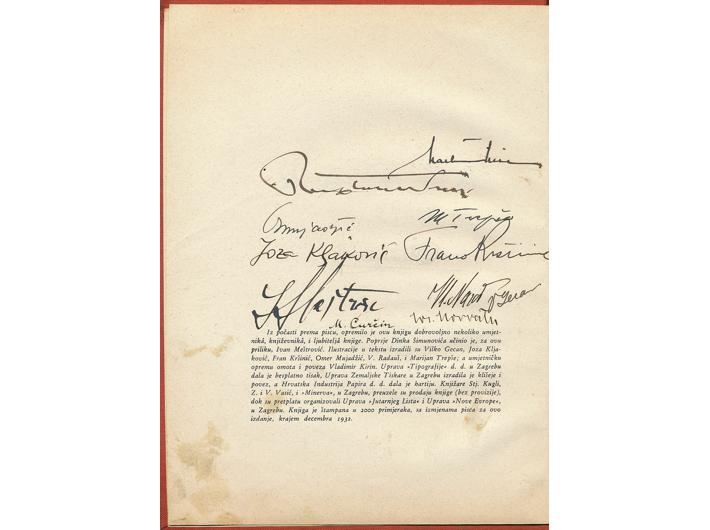 M Trepše
Omujadžić
Joza Kljaković Frano Kršinić
M. Ćurčin
Iz počasti prema piscu, opremilo je ovu knjigu dobrovoljno nekoliko umjet-
nikâ, književnikâ, i ljubiteljâ knjige. Poprsje Dinka Šimunovića učinio je, za ovu
priliku, Ivan Meštrović. Ilustracije u tekstu izradili su Vilko Gecan, Joza Klja-
ković, Fran Kršinić, Omer Mujadžić, V. Radauš, i Marijan Trepše; a umjetničku
opremu omota i poveza Vladimir Kirin. Uprava »Tipografije« d. d. u Zagrebu
dala je besplatno tisak, Uprava Zemaljske Tiskare u Zagrebu izradila je klišeje i
povez, a Hrvatska Industrija Papira d. d. dala je hartiju. Knjižare Stj. Kugli,
Z. i V. Vasić, i »Minerva«, u Zagrebu, preuzele su prodaju knjige (bez provizije),
dok su pretplatu organizovali Uprava »Jutarnjeg Lista« i Uprava »Nove Evrope«,
u Zagrebu. Knjiga je štampana u 2000 primjeraka, sa izmjenama pisca za ovo
izdanje, krajem decembra 1932.